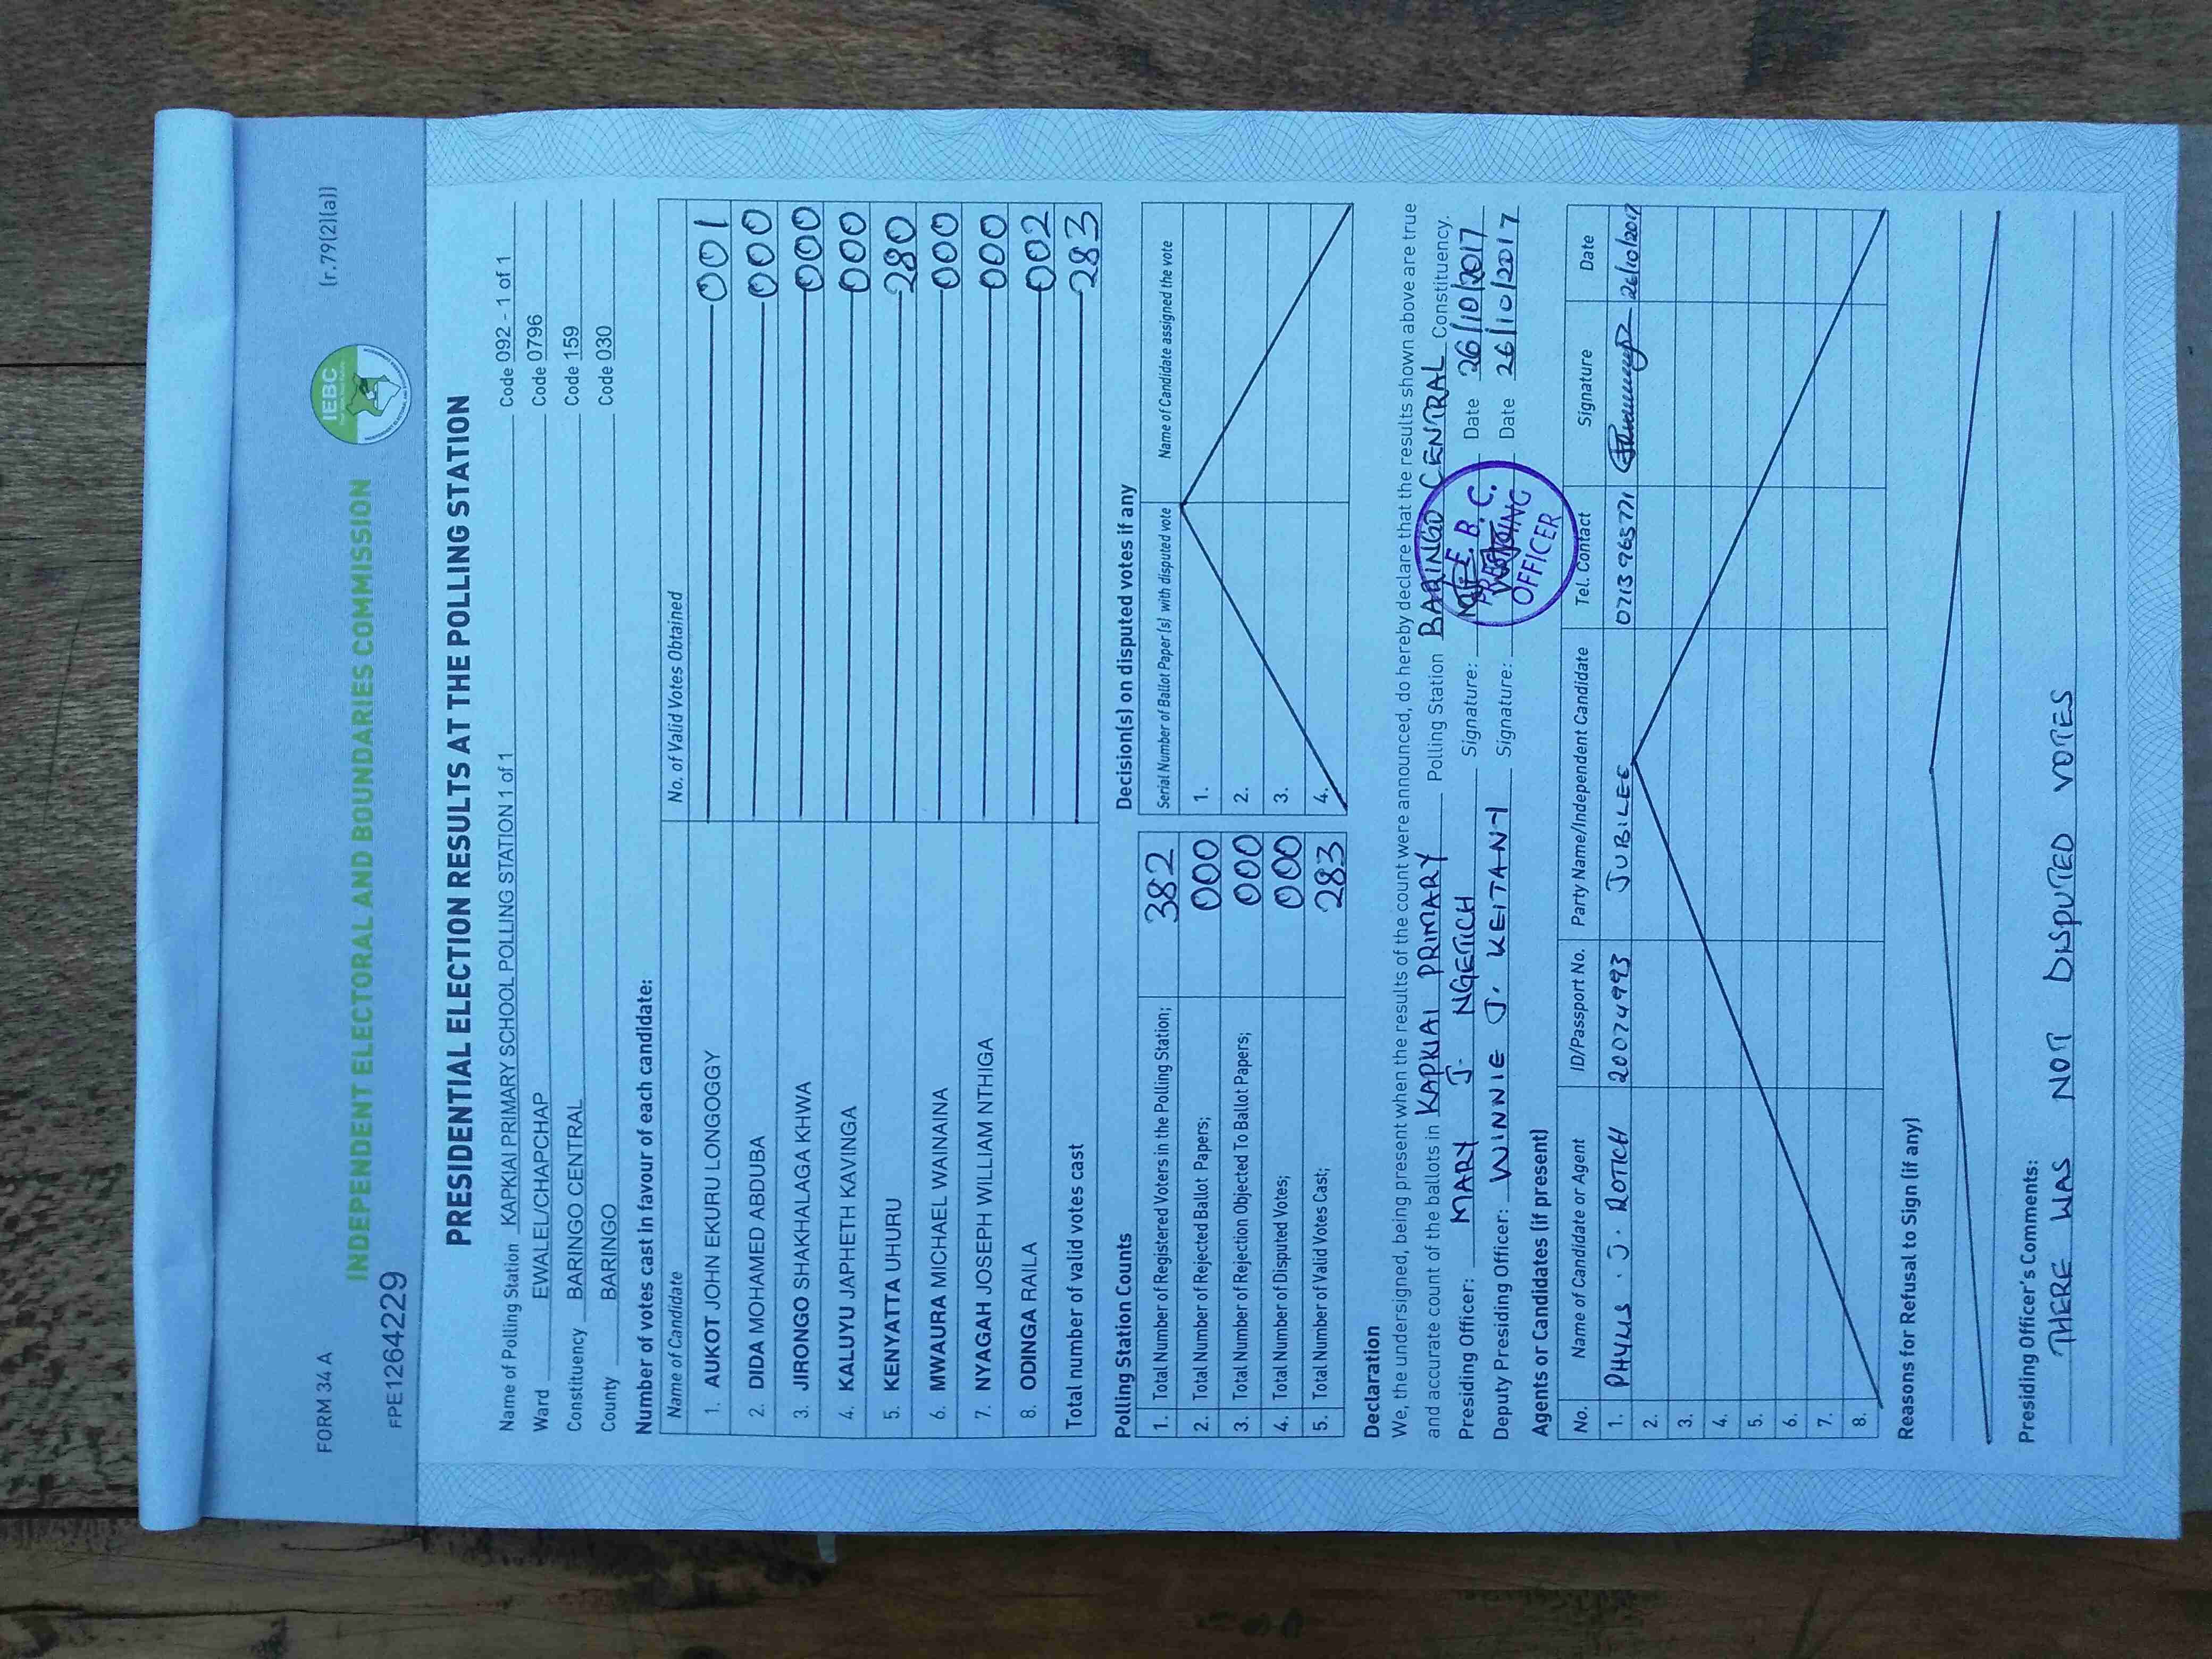 FORM 34 A
(r.79(2)(a))
IEBC
INDEPENDENT ELECTORAL AND BOUNDARIES COMMISSION
FPE1264229
PRESIDENTIAL ELECTION RESULTS AT THE POLLING STATION
Name of Polling Station KAPKIAI PRIMARY SCHOOL POLLING STATION 1 of 1 Code 092 - 1 of 1
Ward EWALEL/CHAPCHAP Code 0796
Constituency BARINGO CENTRAL Code 159
County BARINGO Code 030
Number of votes cast in favour of each candidate:
Name of Candidate No. of Valid Votes Obtained
1. AUKOT JOHN EKURU LONGOGGY 001
2. DIDA MOHAMED ABDUBA 000
3. JIRONGO SHAKHALAGA KHWA 000
4. KALUYU JAPHETH KAVINGA 000
5. KENYATTA UHURU 280
6. MWAURA MICHAEL WAINAINA 000
7. NYAGAH JOSEPH WILLIAM NTHIGA 000
8. ODINGA RAILA 002
Total number of valid votes cast 283
Polling Station Counts
1. Total Number of Registered Voters in the Polling Station; 382
2. Total Number of Rejected Ballot Papers; 000
3. Total Number of Rejection Objected To Ballot Papers; 000
4. Total Number of Disputed Votes; 000
5. Total Number of Valid Votes Cast; 283
Decision(s) on disputed votes if any
Serial Number of Ballot Paper(s) with disputed vote Name of Candidate assigned the vote
1.
2.
3.
4.
Declaration
We, the undersigned, being present when the results of the count were announced, do hereby declare that the results shown above are true
and accurate count of the ballots in KAPKIAI PRIMARY Polling Station BARINGO CENTRAL Constituency.
Presiding Officer: MARY J. NGETICH Signature: Date 26/10/2017
Deputy Presiding Officer: WINNIE J. KEITANY Signature: Date 26/10/2017
I. E. B. C.
PRESIDING
OFFICER
Agents or Candidates (if present)
No. Name of Candidate or Agent ID/Passport No. Party Name/Independent Candidate Tel. Contact Signature Date
1. PHYLIS . J. ROTICH 20074993 JUBILEE 0713965771 26/10/2017
2.
3.
4.
5.
6.
7.
8.
Reasons for Refusal to Sign (if any)
Presiding Officer's Comments:
THERE WAS NOT DISPUTED VOTES